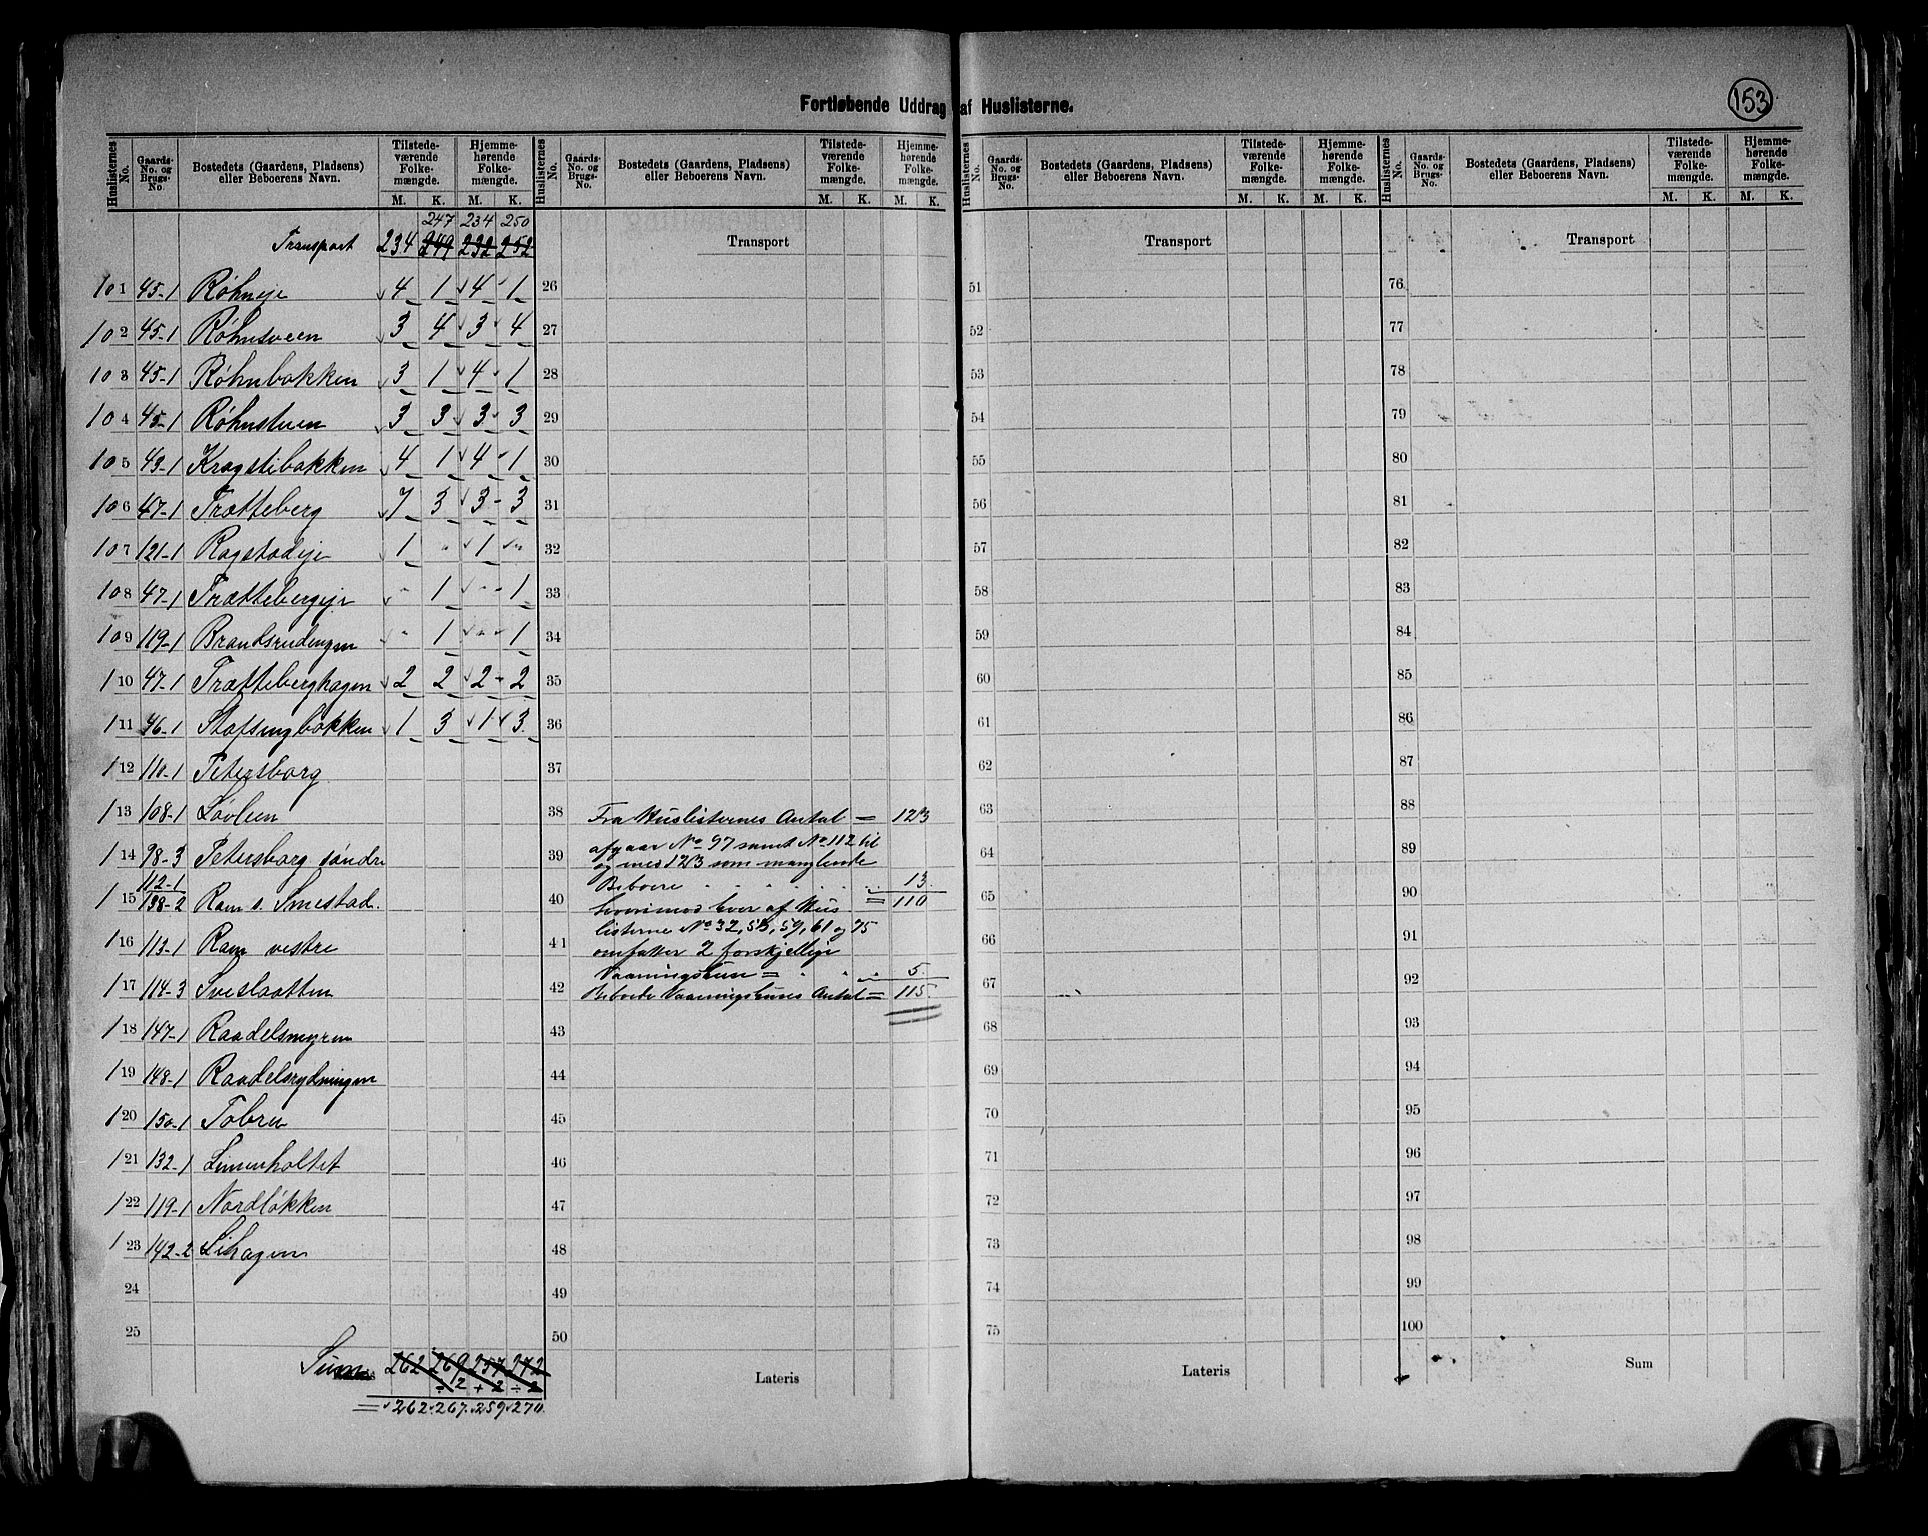 153
Fortløbende Uddrag af Huslisterne.
Huslisternes No. Gaards-No. og Brugs-No. Bostedets (Gaardens, Pladsens) eller Beboerens Navn. Tilstede-værende Folke-mængde. Hjemme-hørende Folke-mængde.
Huslisternes No. Gaards-No. og Brugs-No. Bostedets (Gaardens, Pladsens) eller Beboerens Navn. Tilstede-værende Folke-mængde. Hjemme-hørende Folke-mængde.
Huslisternes No. Gaards-No. og Brugs-No. Bostedets (Gaardens, Pladsens) eller Beboerens Navn. Tilstede-værende Folke-mængde. Hjemme-hørende Folke-mængde.
Huslisternes No. Gaards-No. og Brugs-No. Bostedets (Gaardens, Pladsens) eller Beboerens Navn. Tilstede-værende Folke-mængde. Hjemme-hørende Folke-mængde.
M. K. M. K. M. K. M. K. M. K. M. K. M. K. M. K.
247 234 250
Transport 234 249 232 252
101 45-1 Røhneje 4 1 4 1
102 45-1 Røhnsveen 3 4 3 4
103 45-1 Røhnbakken 3 1 4 1
104 45-1 Røhnstuen 3 3 3 3
105 43-1 Kragstibakken 4 1 4 1
106 47-1 Trætteberg 7 3 3 3
107 121-1 Ragstadeje 1 " 1 "
108 47-1 Trættebergeje " 1 " 1
109 119-1 Brandsrudengen " 1 " 1
110 47-1 Trætteberghagen 2 2 2 2
111 46-1 Stafsingbakken 1 3 1 3
112 110-1 Petersborg
113 108-1 Løvlien
114 98-3 Petersborg søndre
112-1
115 138-2 Ram s. Smestad.
116 113-1 Ram vestre
117 114-3 Sveslaatten
118 147-1 Raadelsmyren
119 148-1 Raadelsrydningen
120 150-1 Tobru
121 132-1 Linnerholtet
122 119-1 Nordløkken
123 142-2 Lihagen
24
25
Sum 262 269 257 272
÷ 2 + 2 ÷ 2
= 262 267 259 270
Transport
26
27
28
29
30
31
32
33
34
35
36
37
38 Fra Huslisternes Antal = 123
afgaar No 97 samt No 112 til
39 og med 123 som manglende
Beboere 13.
40 = 110
hvorimod hver af Hus
listerne No 32, 53, 59, 61 og 75
41 omfatter 2 forskjellige
Vaaningshuse = 5.
42 Beboede Vaaningshuses Antal = 115.
43
44
45
46
47
48
49
50
Lateris
Transport
51
52
53
54
55
56
57
58
59
60
61
62
63
64
65
66
67
68
69
70
71
72
73
74
75
Lateris
Transport
76
77
78
79
80
81
82
83
84
85
86
87
88
89
90
91
92
93
94
95
96
97
98
99
100
Sum